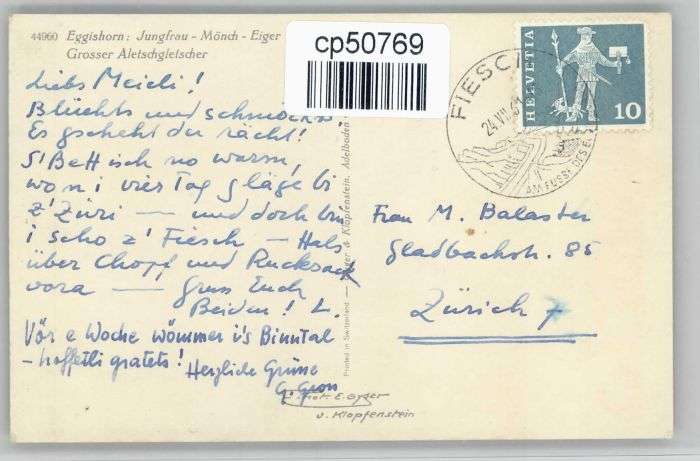 44960 Eggishorn: Jungfrau - Mönch - Eiger
Grosser Aletschgletscher
cp50769
HELVETIA
10
FIESC
24.VII.
AM FUSSE DES E
Liebs Meieli!
und
Es gscheht der rächt!
S'Bett isch no warm,
won i vier Tag gläge bi
z'Züri — und doch bin
i scho z'Fiesch — Hals
über Chopf und Rucksack
vora — Gruss Euch
Beiden! L.
Vör e Woche wömmer i's Binntal
- hoffetli gratets!
Herzliche Grüsse
G.
Frau M. Balaster
Gladbachstr. 85
Zürich 7
Printed in Switzerland — Gyger & Klopfenstein, Adelboden
Phot. E. Gyger
u. Klopfenstein